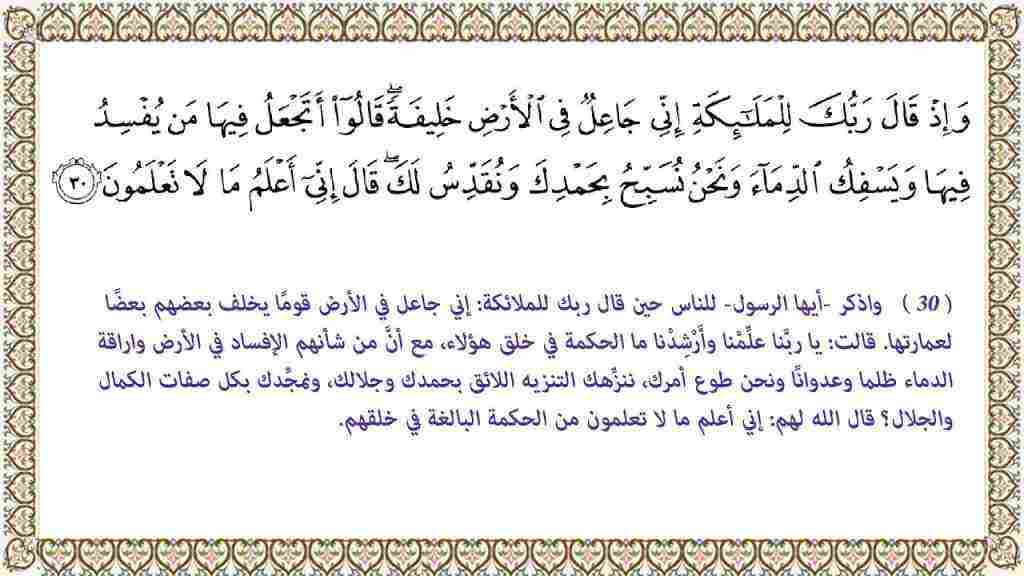 وَإِذْ قَالَ رَبُّكَ لِلْمَلَـٰٓئِكَةِ إِنِّى جَاعِلٌ فِى ٱلْأَرْضِ خَلِيفَةً ۖ قَالُوٓا۟ أَتَجْعَلُ فِيهَا مَن يُفْسِدُ
فِيهَا وَيَسْفِكُ ٱلدِّمَآءَ وَنَحْنُ نُسَبِّحُ بِحَمْدِكَ وَنُقَدِّسُ لَكَ ۖ قَالَ إِنِّىٓ أَعْلَمُ مَا لَا تَعْلَمُونَ ٣٠
( 30 ) واذكر -أيها الرسول- للناس حين قال ربك للملائكة: إني جاعل في الأرض قومًا يخلف بعضهم بعضًا
لعمارتها. قالت: يا ربَّنا علِّمْنا وأَرْشِدْنا ما الحكمة في خلق هؤلاء، مع أنَّ من شأنهم الإفساد في الأرض واراقة
الدماء ظلما وعدوانًا ونحن طوع أمرك، ننزِّهك التنزيه اللائق بحمدك وجلالك، ونمجِّدك بكل صفات الكمال
والجلال؟ قال الله لهم: إني أعلم ما لا تعلمون من الحكمة البالغة في خلقهم.